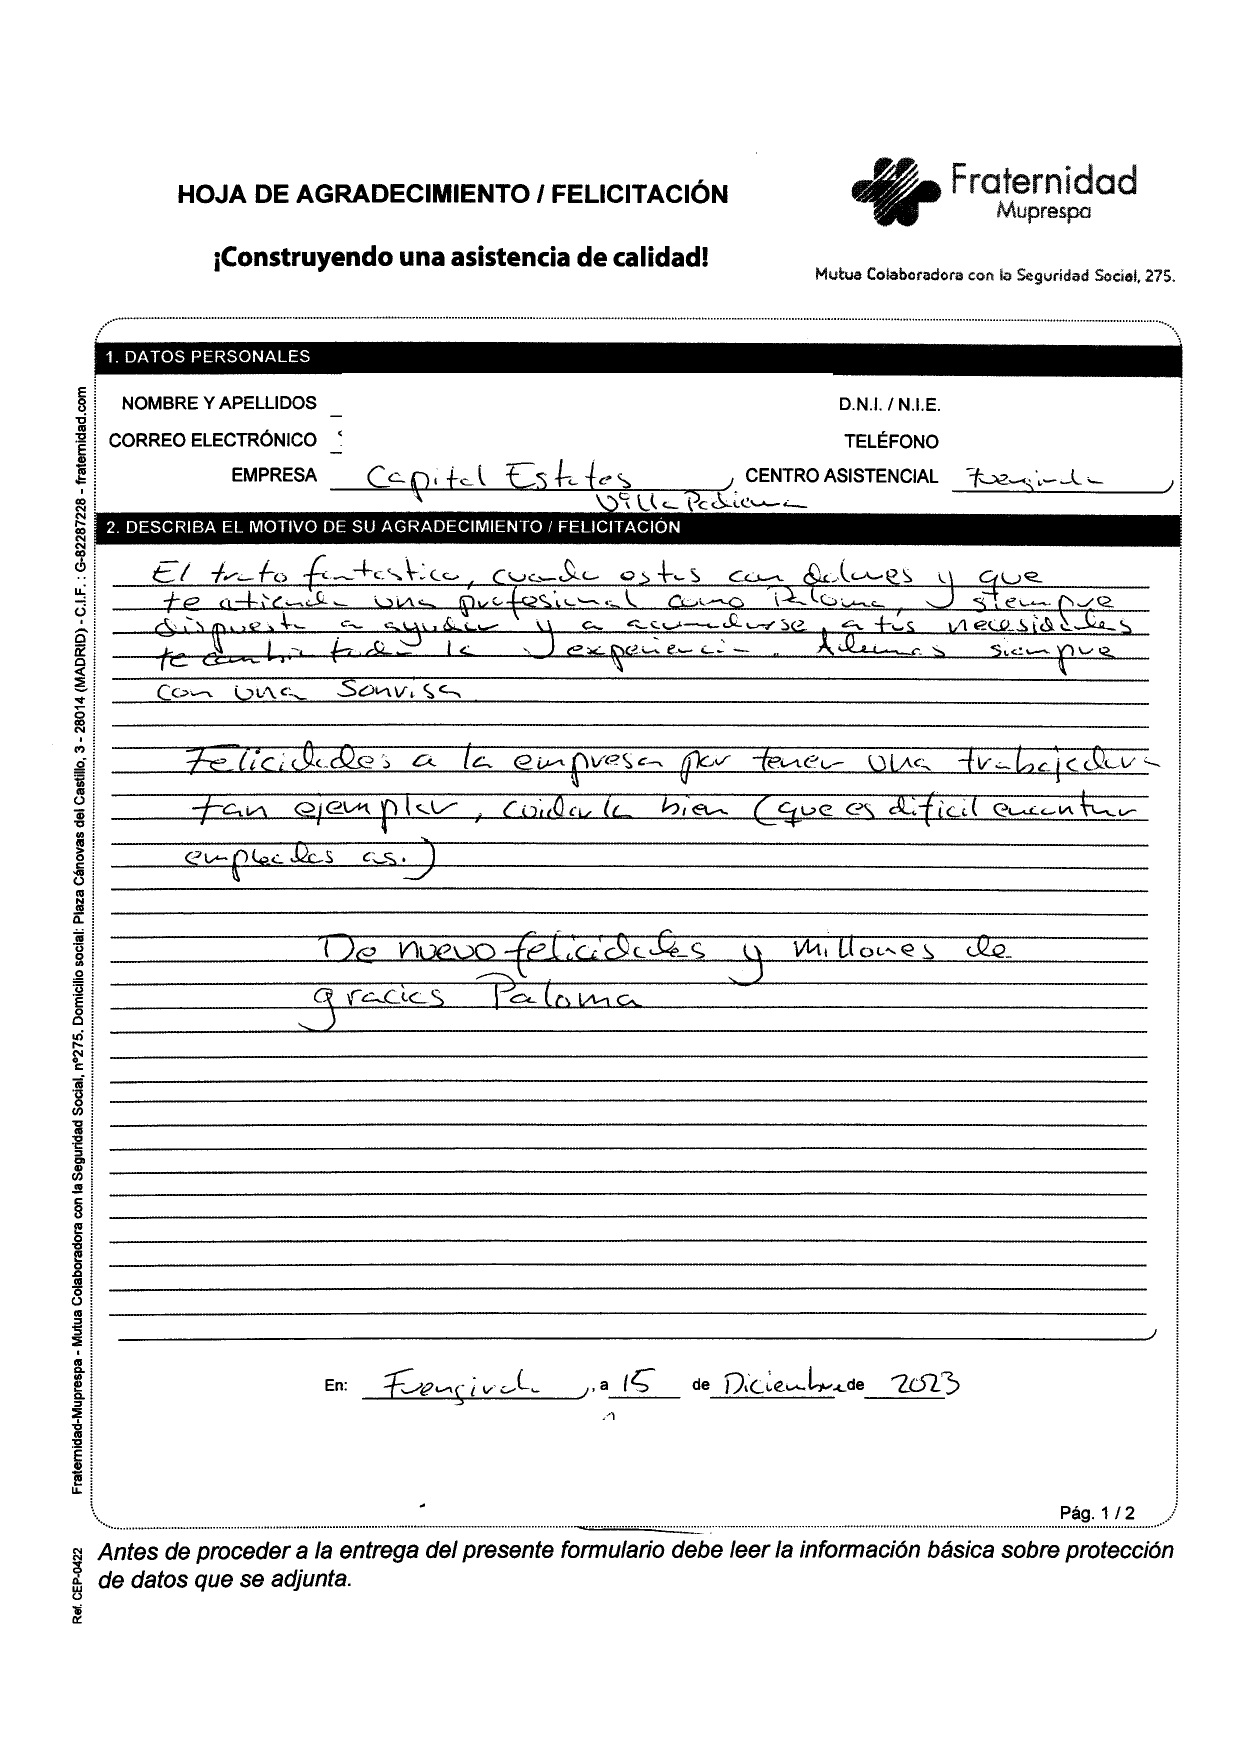 HOJA DE AGRADECIMIENTO / FELICITACIÓN
¡Construyendo una asistencia de calidad!
Fraternidad
Muprespa
Mutua Colaboradora con la Seguridad Social, 275.
1. DATOS PERSONALES
NOMBRE Y APELLIDOS
D.N.I. / N.I.E.
CORREO ELECTRÓNICO
TELÉFONO
EMPRESA Capital Estates CENTRO ASISTENCIAL Fuengirola
Villa Padierna
2. DESCRIBA EL MOTIVO DE SU AGRADECIMIENTO / FELICITACIÓN
El trato fantastico, cuando estas con dolores y que
te atienda una profesional como Paloma, siempre
dispuesta a ayudar y a acomodarse a tus necesidades
te cambia toda la experiencia. Ademas siempre
con una sonrisa
Felicidades a la empresa por tener una trabajadora
tan ejemplar, cuidarla bien (que es dificil encontrar
empleadas as.)
De nuevo felicidades y millones de
gracias Paloma
En: Fuengirola, a 15 de Diciembre de 2023
Pág. 1 / 2
Antes de proceder a la entrega del presente formulario debe leer la información básica sobre protección
de datos que se adjunta.
Fraternidad-Muprespa - Mutua Colaboradora con la Seguridad Social, nº275. Domicilio social: Plaza Cánovas del Castillo, 3 - 28014 (MADRID) - C.I.F. : G-82287228 - fraternidad.com
Ref. CEP-0422